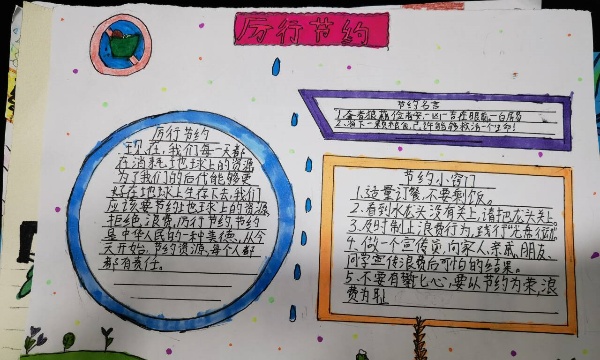 厉行节约
厉行节约
现在,我们每一天都
在消耗地球上的资源
为了我们的后代能够更
好在地球上生存下去,我们
应该要节约地球上的资源,
拒绝浪费,厉行节约,节约
是中华人民的一种美德,从今
天开始,节约资源,每个人都
都有责任。
节约名言
节约小窍门
1.适量订餐,不要剩饭。
2.看到水龙头没有关上,请把龙头关上。
3.及时制止浪费行为,践行“光盘行动”
4.做一个宣传员,向家人、亲戚、朋友、
宣传浪费后可怕的结果。
5.不要有攀比心,要以节约为荣,浪
费为耻